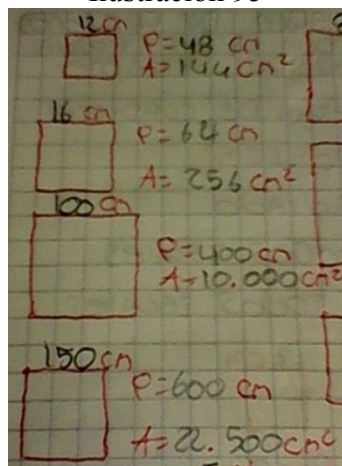 12 cm
P=48 cm
A=144cm²
16 cm
P=64 cm
A=256 cm²
100 cm
P=400 cm
A=10.000cm²
150 cm
P=600 cm
A=22.500cm²